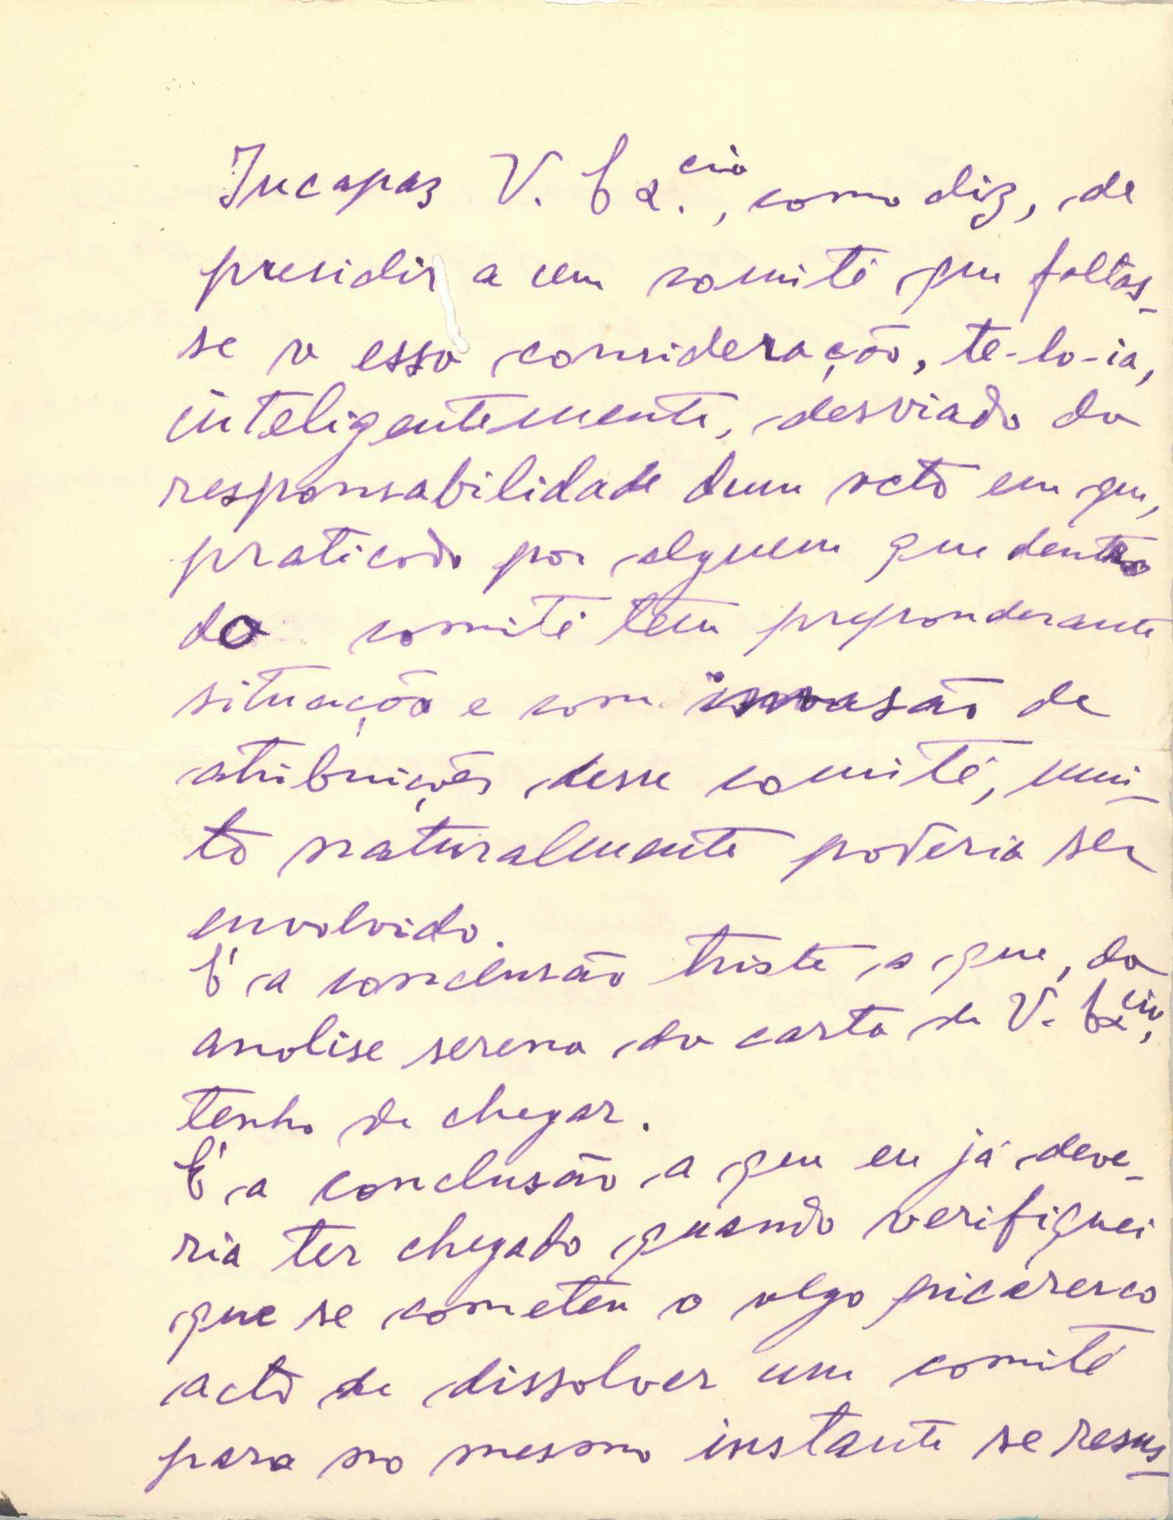 Incapaz V. Ex.cia, como diz, de
presidir a um comité que faltas-
se a essa consideração, te-lo-ia,
inteligentemente, desviado da
responsabilidade dum acto em que,
praticado por alguem que dentro
do comité tem preponderante
situação e com invasão de
atribuições desse comité, mui-
to naturalmente poderia ser
envolvido.
É a conclusão triste a que, da
analise serena da carta de V. Excia,
tenho de chegar.
É a conclusão a que eu já deve-
ria ter chegado quando verifiquei
que se cometeu o algo picaresco
acto de dissolver um comité
para no mesmo instante se resus-